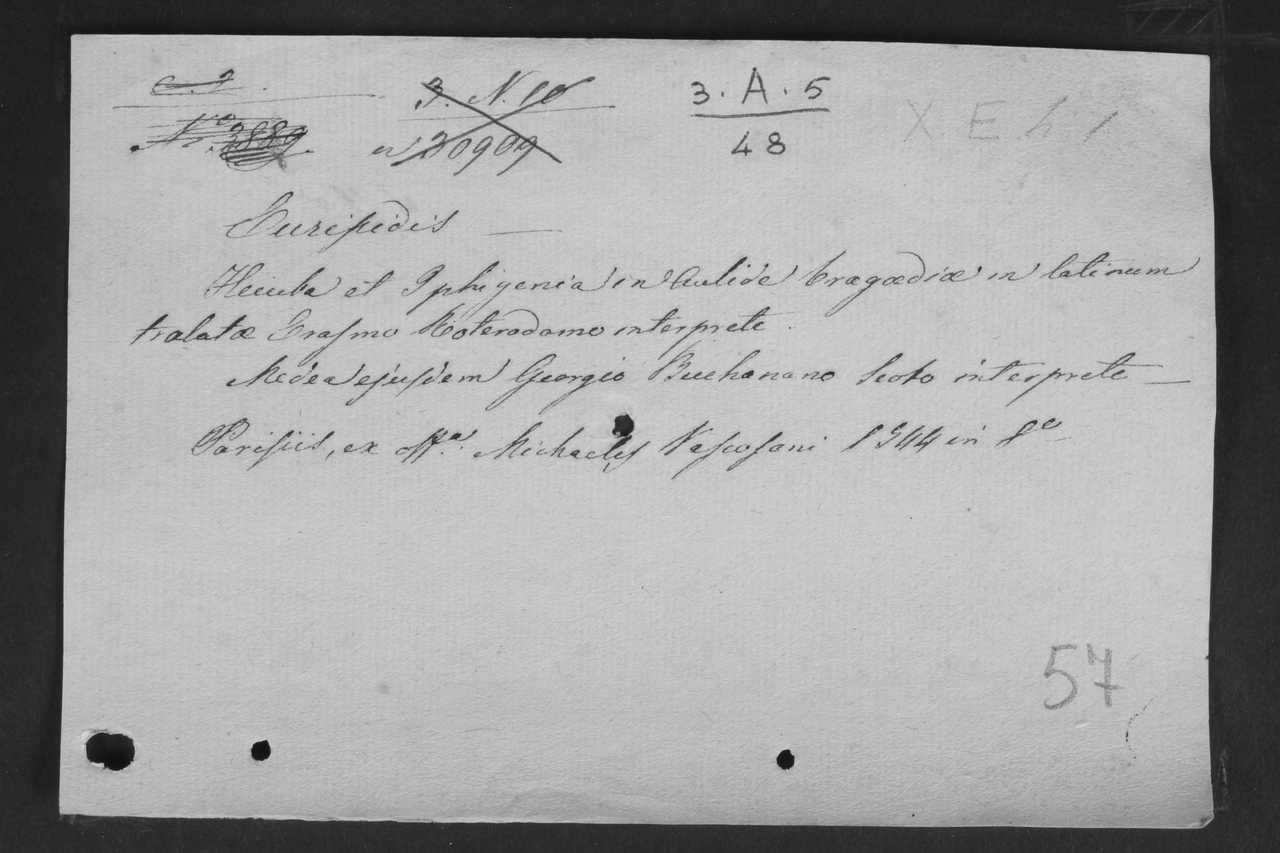 C. 2 3. N. 10 3 . A . 5 X E h 1
Nº. 3889. en 20909 48
Euripidis —
Hecuba et Iphigenia in Aulide tragœdiæ in latinum
tralatæ Erasmo Roterodamo interprete.
Medea ejusdem Georgio Buchanano Scoto interprete —
Parisiis, ex offª. Michaelis Vascosani 1544 in 8º
57